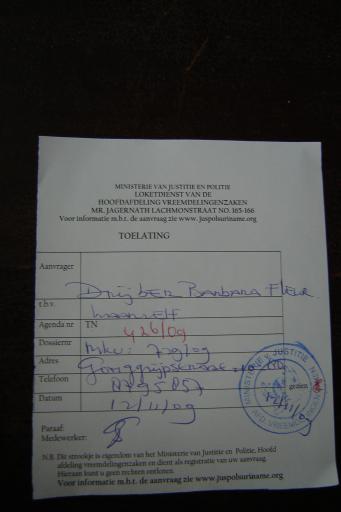 MINISTERIE VAN JUSTITIE EN POLITIE
LOKETDIENST VAN DE
HOOFDAFDELING VREEMDELINGENZAKEN
MR. JAGERNATH LACHMONSTRAAT NO. 165-166
Voor informatie m.b.t. de aanvraag zie www. juspolsuriname.org
TOELATING
Aanvrager Drijber Barbara Fleur
t.b.v.
Agenda nr TN 426/09
Dossiernr 779/09
Adres
Telefoon
Datum 12/11/09
gezien
MINISTERIE V. JUSTITIE
AFD. VREEMD
Paraaf:
Medewerker:
N.B. Dit strookje is eigendom van het Ministerie van Justitie en Politie, Hoofd
afdeling vreemdelingenzaken en dient als registratie van uw aanvraag.
Hieraan kunt u geen rechten ontlenen.
Voor informatie m.b.t. de aanvraag zie www.juspolsuriname.org